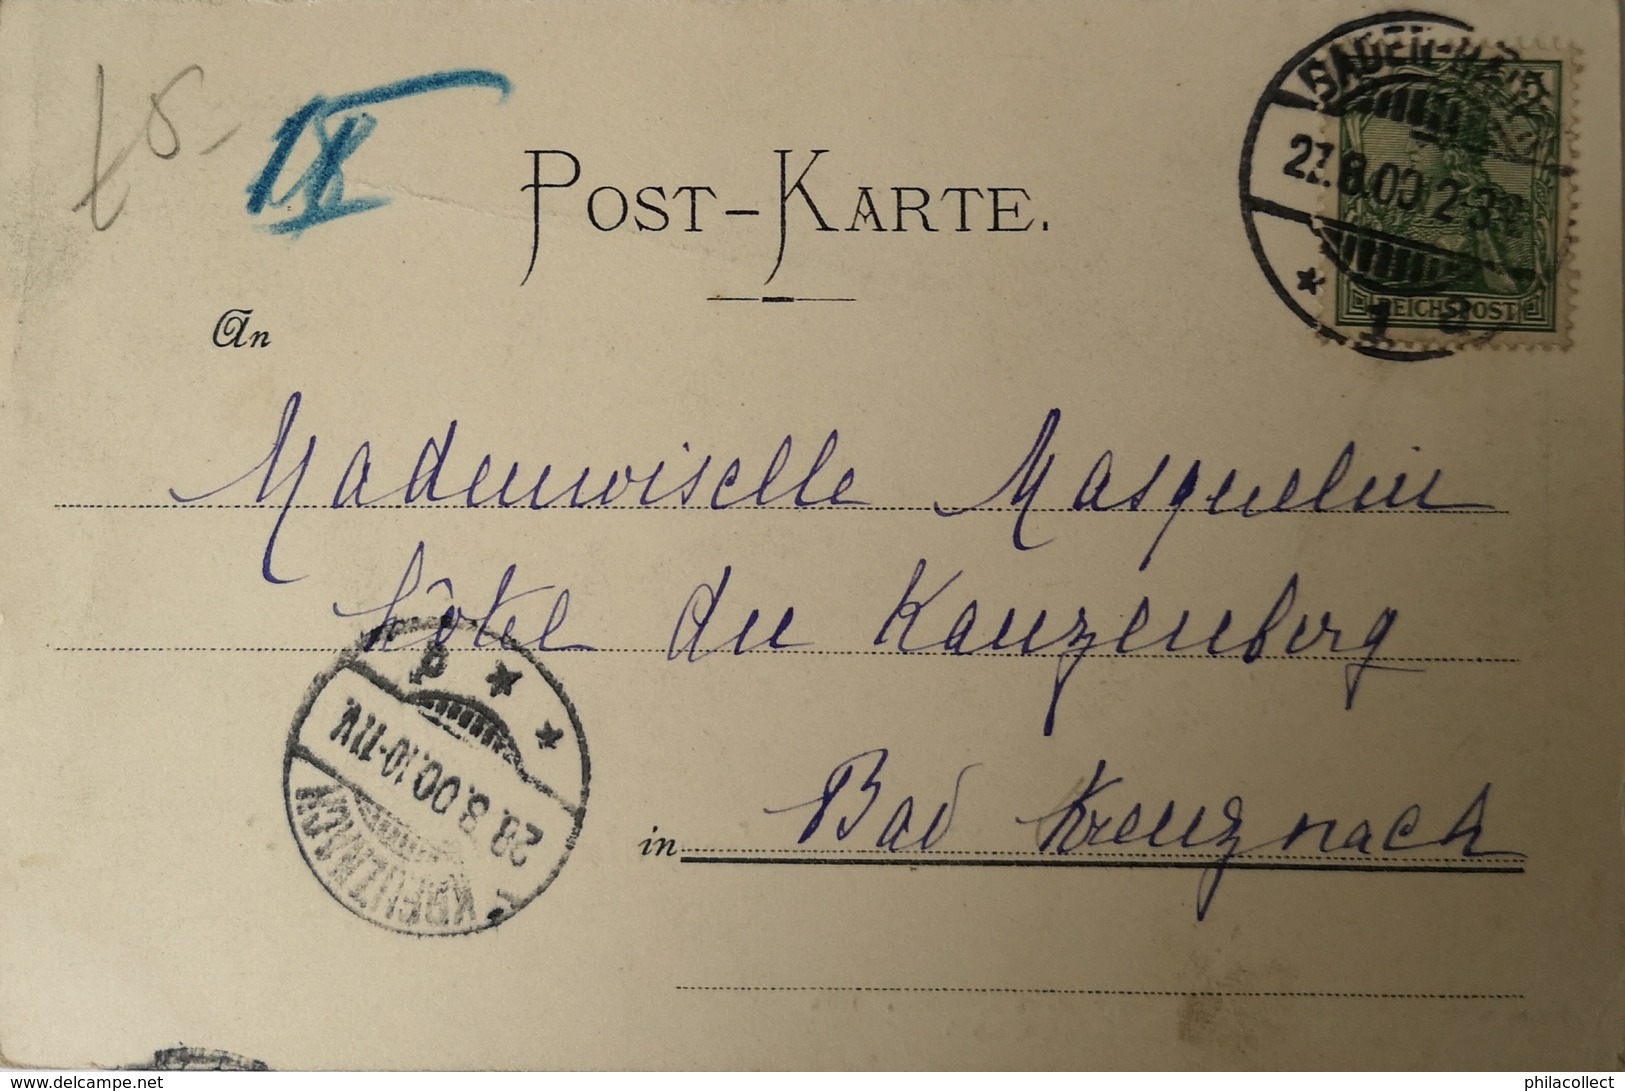 IX
POST-KARTE.
BADEN-BADEN
27.8.00 2-3N
* 1 c
REICHSPOST
An
Mademoiselle Masquelin
hôtel du Kauzenberg
in Bad Kreuznach
KREUZNACH
28.8.00.10-11V.
* *
www.delcampe.net
philacollect